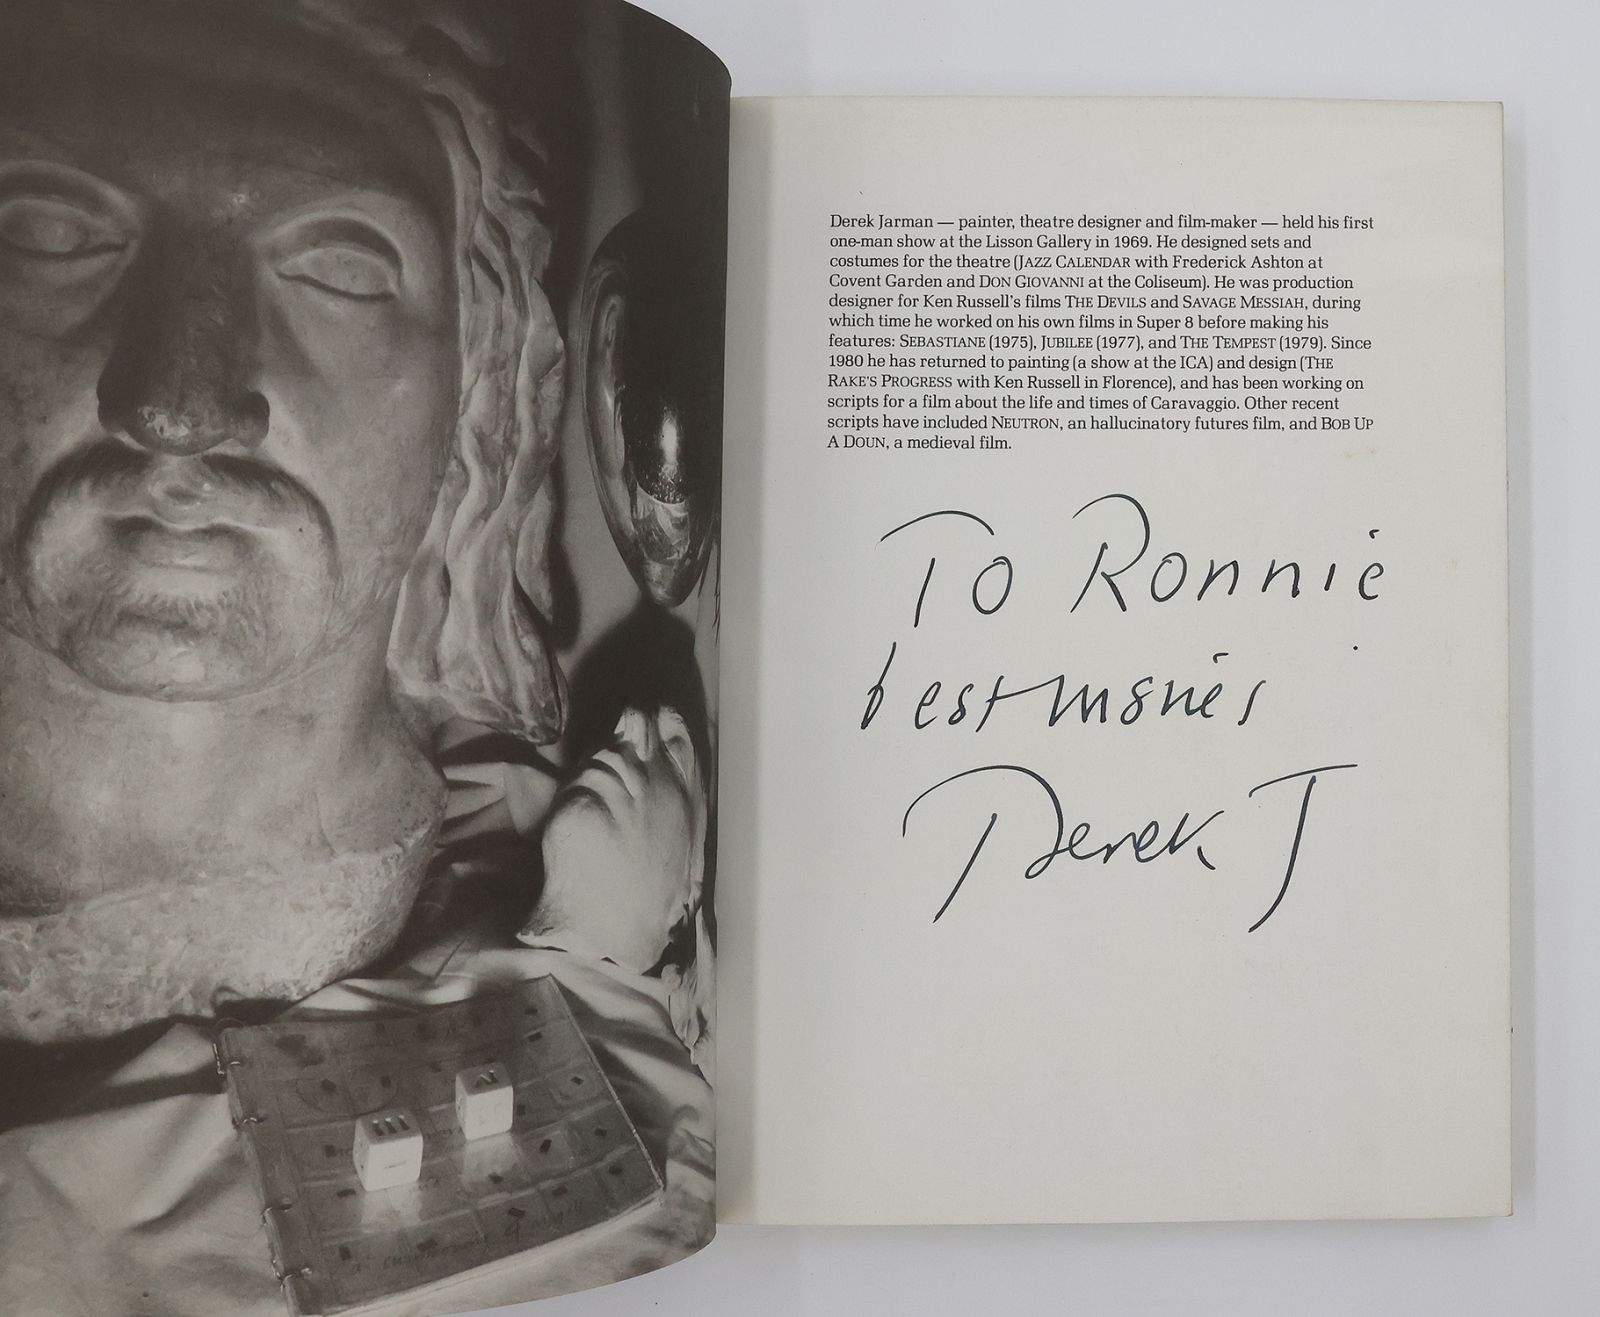 Derek Jarman — painter, theatre designer and film-maker — held his first
one-man show at the Lisson Gallery in 1969. He designed sets and
costumes for the theatre (JAZZ CALENDAR with Frederick Ashton at
Covent Garden and DON GIOVANNI at the Coliseum). He was production
designer for Ken Russell's films THE DEVILS and SAVAGE MESSIAH, during
which time he worked on his own films in Super 8 before making his
features: SEBASTIANE (1975), JUBILEE (1977), and THE TEMPEST (1979). Since
1980 he has returned to painting (a show at the ICA) and design (THE
RAKE'S PROGRESS with Ken Russell in Florence), and has been working on
scripts for a film about the life and times of Caravaggio. Other recent
scripts have included NEUTRON, an hallucinatory futures film, and BOB UP
A DOUN, a medieval film.
To Ronnie
best wishes
Derek J